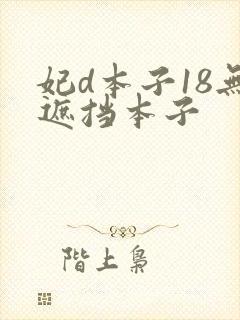 妃d本子18無
遮挡本子
階上梟